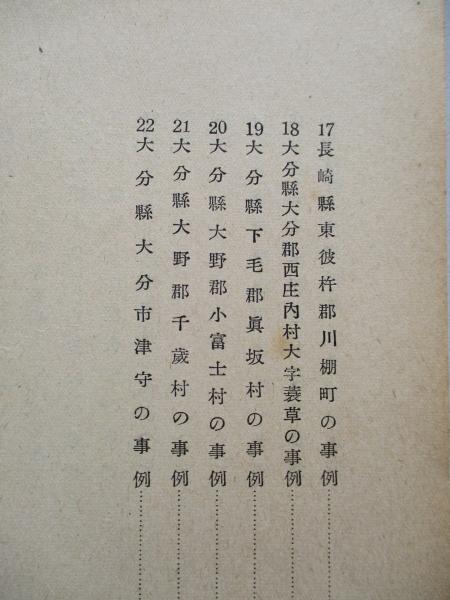 17 長崎縣東彼杵郡川棚町の事例…………
18 大分縣大分郡西庄內村大字蓑草の事例…………
19 大分縣下毛郡眞坂村の事例…………
20 大分縣大野郡小富士村の事例…………
21 大分縣大野郡千歲村の事例…………
22 大分縣大分市津守の事例…………